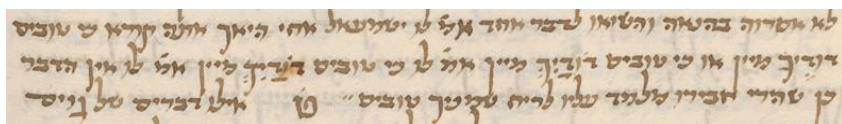 לא אסרוה בהנאה והשיאו לדבר אחר אמ' לו ישמעאל אחי היאך אתה קורא כי טובים
דודיך מיין או כי טובים דודיך מיין אמ' לו כי טובים דודיך מיין אמ' לו אין הדבר
כן שהרי חבירו מלמד עליו לריח שמניך טובים אילו דברים של גוים